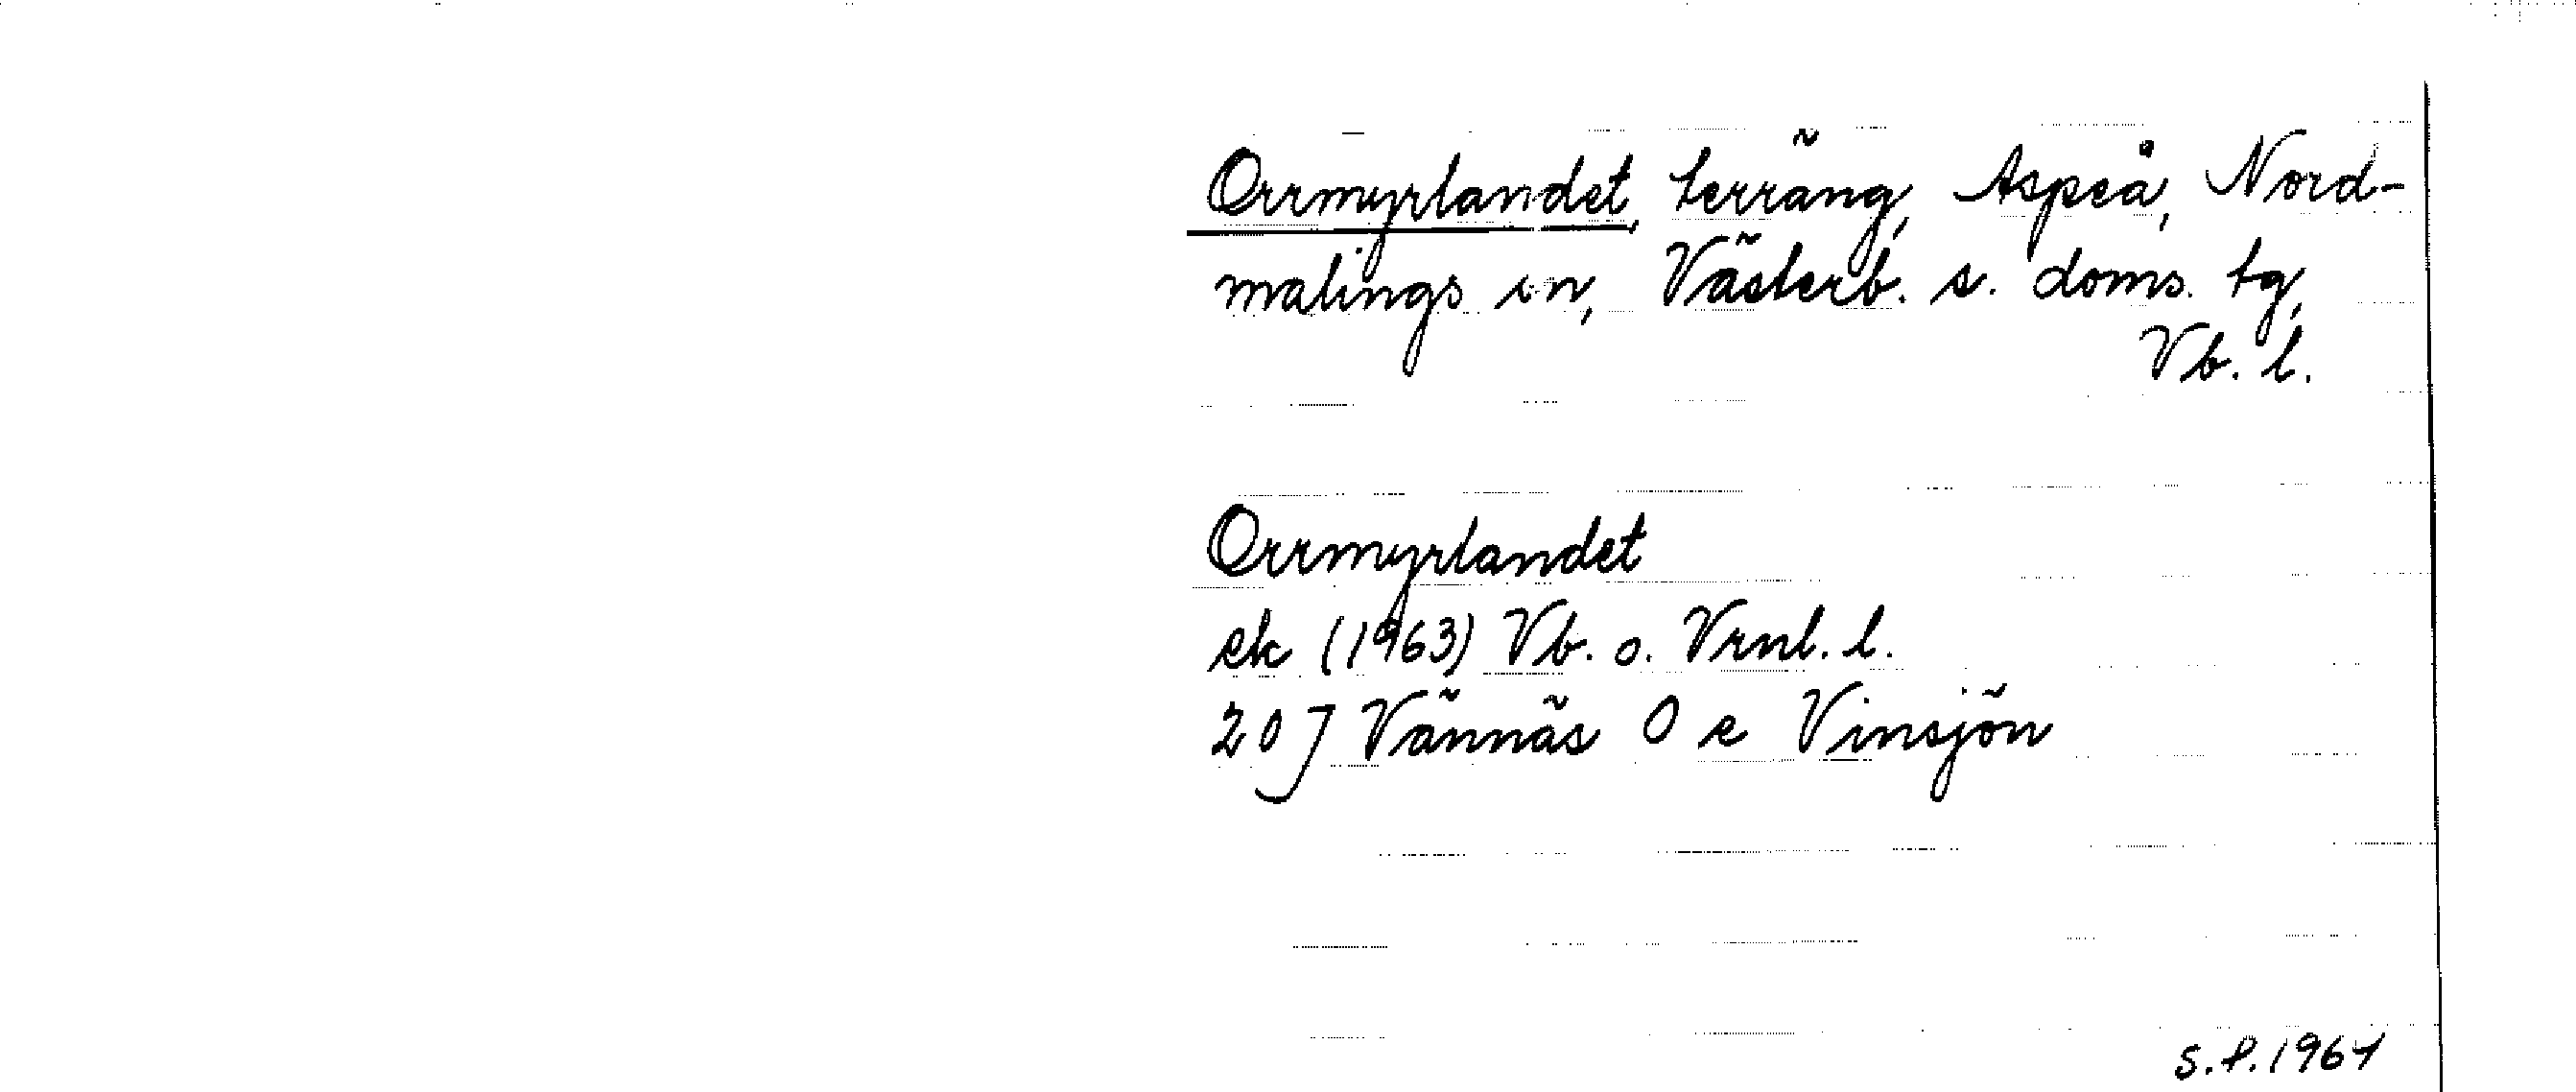 Orrmyrlandet, terräng, Aspeå, Nord-
malings sn, Västerb. s. doms. tg,
Vb. l.
Orrmyrlandet
ek (1963) Vb. o. Vrnl. l.
20 J Vännäs O e Vinsjön
S.P. 1964